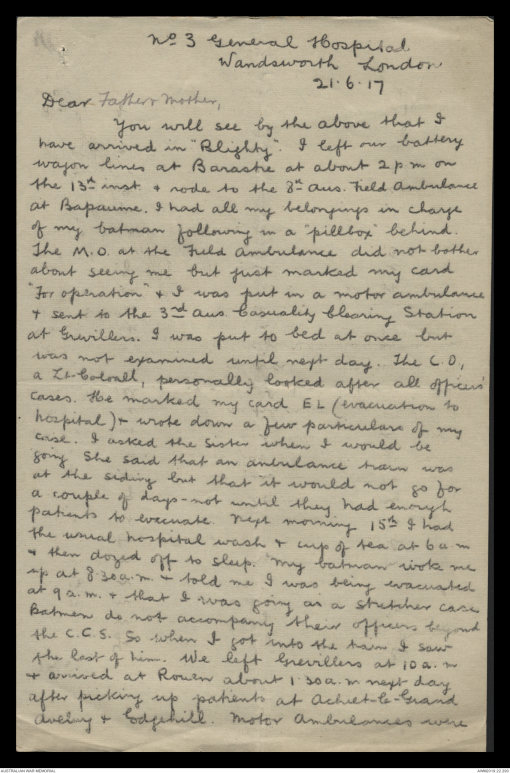 No 3 General Hospital
Wandsworth London
21.6.17
Dear Father & Mother,
You will see by the above that I
have arrived in "Blighty". I left our battery
wagon lines at Barastre at about 2 p m on
the 13th inst & rode to the 8th Aus. Field Ambulance
at Bapaume. I had all my belongings in charge
of my batman following in a "pillbox" behind.
The M.O. at the Field Ambulance did not bother
about seeing me but just marked my card
"For operation" & I was put in a motor ambulance
& sent to the 3rd Aus. Casualty Clearing Station
at Grevillers. I was put to bed at once but
was not examined until next day. The C.O,
a Lt-Colonall, personally looked after all officers'
cases. He marked my card EL (evacuation to
hospital) & wrote down a few particulars of my
case. I asked the Sister when I would be
going She said that an ambulance train was
at the siding but that it would not go for
a couple of days - not until they had enough
patients to evacuate. Next morning 15th I had
the usual hospital wash & cup of tea at 6 a m
& then dozed off to sleep. My batman woke me
up at 8.30 a.m. & told me I was being evacuated
at 9 a.m. & that I was going as a stretcher case
Batmen do not accompany their officers beyond
the C.C.S. So when I got into the train I saw
the last of him. We left Grevillers at 10 a. m
& arrived at Rouen about 1.30 a.m next day
after picking up patients at Achiet-le-Grand
Aveluy & Edgehill. Motor Ambulances were
AUSTRALIAN WAR MEMORIAL